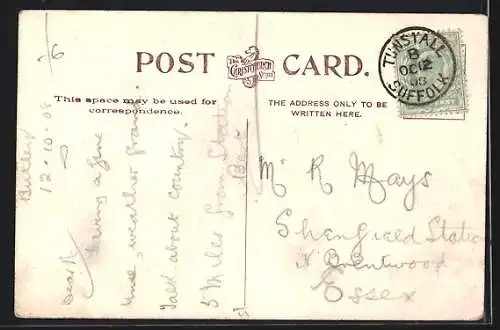 6
POST CARD.
The
CHRISTCHURCH
Series
This space may be used for
correspondence.
THE ADDRESS ONLY TO BE
WRITTEN HERE.
TUNSTALL
B
OC 12
08
SUFFOLK
Butley
12-10-08
Dear R
Having a fine
time, weather grand
Talk about country!
5 miles from Station
Bert
Mr R Mays
Shenfield Station
Nr Brentwood
Essex